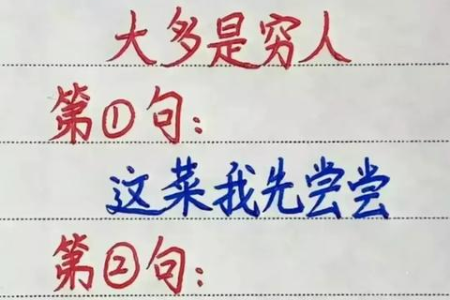 大多是穷人
第①句：
这菜我先尝尝
第②句：